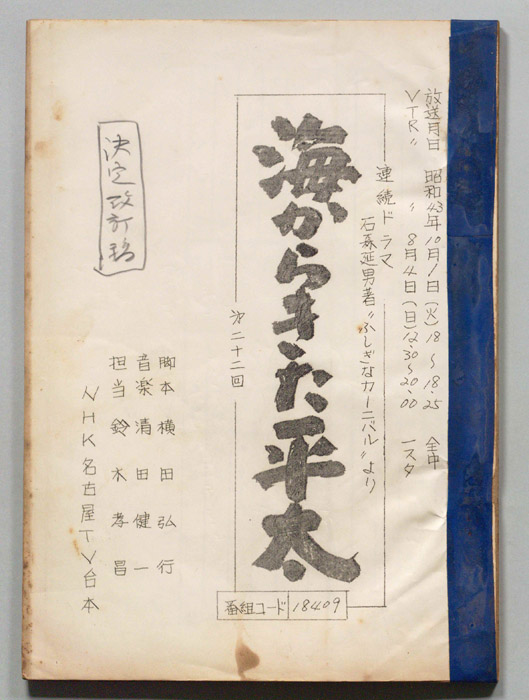 放送月日 昭和43年10月1日(火)18~18.25 全中
VTR〃 〃 8月4日(日)12.30~20.00 一スタ
連続ドラマ
石森延男著〝ふしぎなカーニバル〟より
海からきた平太
㐧二十二回
決定改訂稿
脚本 横田弘行
音楽 清田健一
担当 鈴木孝昌
NHK名古屋TV台本
番組コード 18409